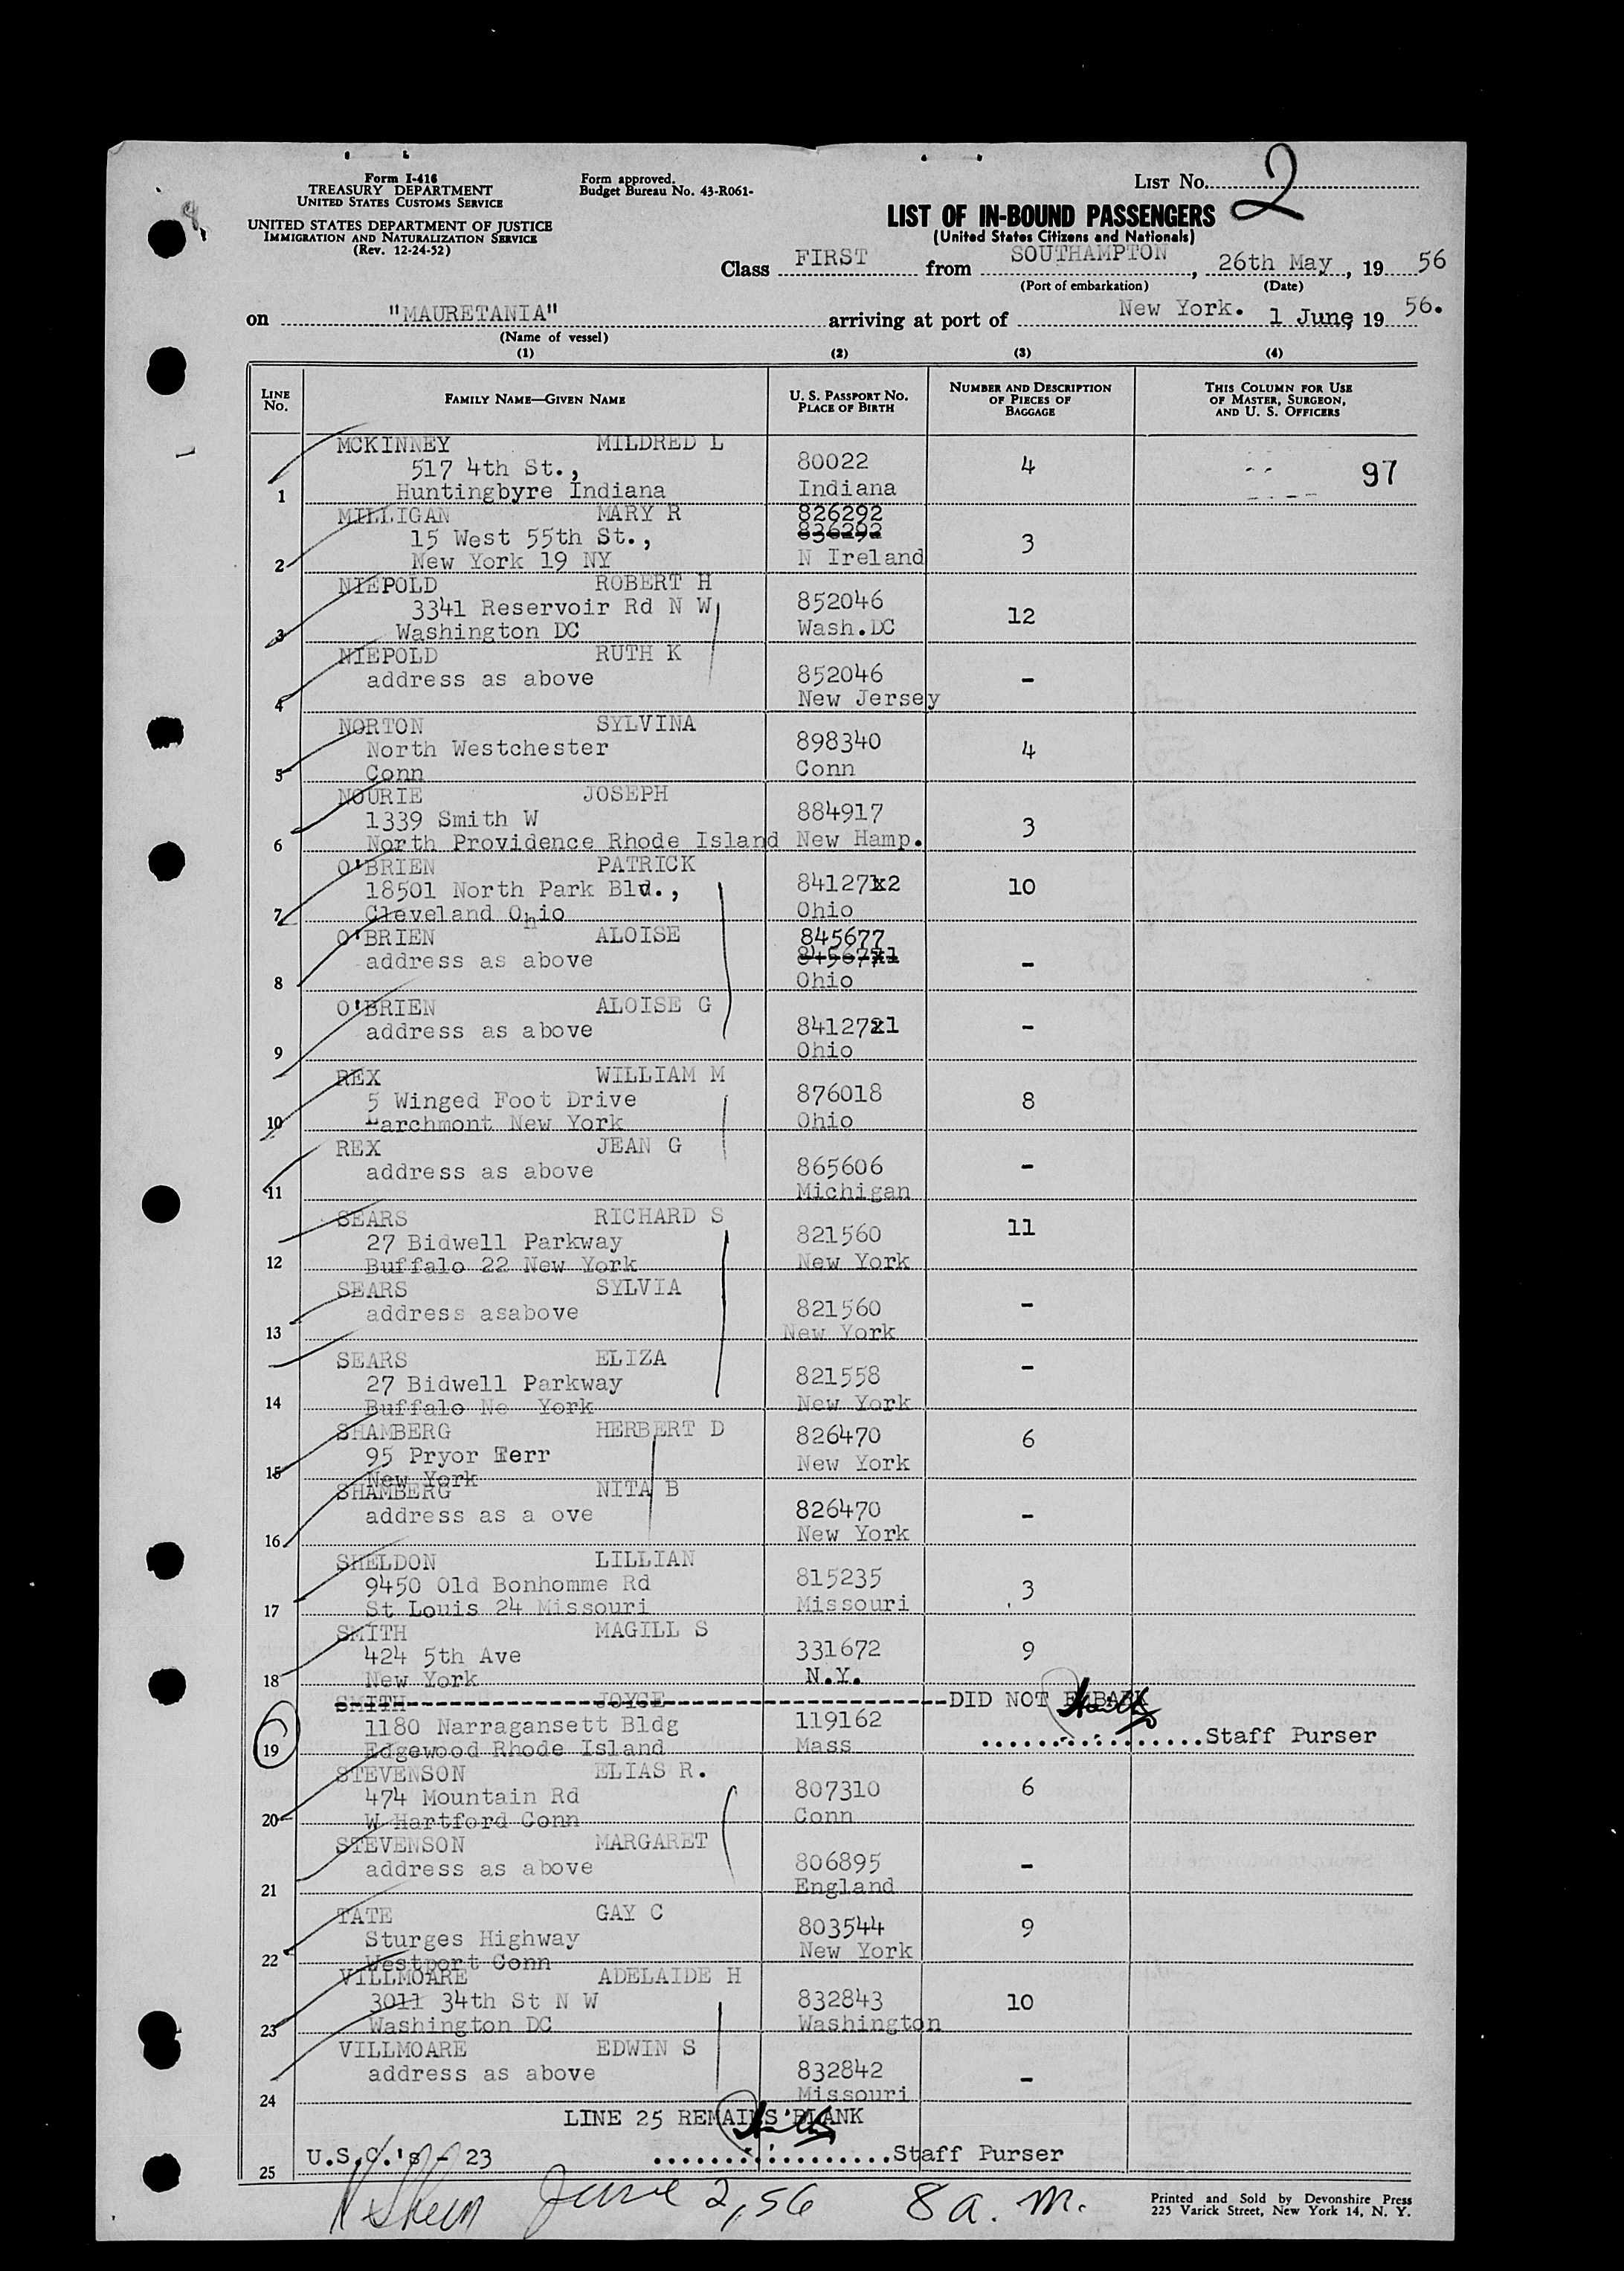 Form I-416
TREASURY DEPARTMENT
UNITED STATES CUSTOMS SERVICE
UNITED STATES DEPARTMENT OF JUSTICE
IMMIGRATION AND NATURALIZATION SERVICE
(Rev. 12-24-52)
Form approved.
Budget Bureau No. 43-R061-
LIST No. 2
LIST OF IN-BOUND PASSENGERS
(United States Citizens and Nationals)
Class FIRST from SOUTHAMPTON, 26th May, 19 56
(Port of embarkation) (Date)
on "MAURETANIA" arriving at port of New York. 1 June, 19 56.
(Name of vessel)
(1) (2) (3) (4)
LINE No. FAMILY NAME—GIVEN NAME U. S. PASSPORT NO. PLACE OF BIRTH NUMBER AND DESCRIPTION OF PIECES OF BAGGAGE THIS COLUMN FOR USE OF MASTER, SURGEON, AND U. S. OFFICERS
MCKINNEY MILDRED L
517 4th St., 80022 4 97
1 Huntingbyre Indiana Indiana
MILLIGAN MARY R 826292
15 West 55th St., 836292 3
2 New York 19 NY N Ireland
NIEPOLD ROBERT H
3341 Reservoir Rd N W 852046 12
3 Washington DC Wash.DC
NIEPOLD RUTH K
address as above 852046 -
4 New Jersey
NORTON SYLVINA
North Westchester 898340 4
5 Conn Conn
NOURIE JOSEPH
1339 Smith W 884917 3
6 North Providence Rhode Island New Hamp.
O'BRIEN PATRICK
18501 North Park Blv., 841271x2 10
7 Cleveland Ohio Ohio
O'BRIEN ALOISE 845677
address as above 84567 -
8 Ohio
O'BRIEN ALOISE G
address as above 841272x1 -
9 Ohio
REX WILLIAM M
5 Winged Foot Drive 876018 8
10 Larchmont New York Ohio
REX JEAN G
address as above 865606 -
11 Michigan
SEARS RICHARD S
27 Bidwell Parkway 821560 11
12 Buffalo 22 New York New York
SEARS SYLVIA
address asabove 821560 -
13 New York
SEARS ELIZA
27 Bidwell Parkway 821558 -
14 Buffalo Ne York New York
SHAMBERG HERBERT D 826470 6
95 Pryor Terr New York
15 New York
SHAMBERG NITA B
address as a ove 826470 -
16 New York
SHELDON LILLIAN
9450 Old Bonhomme Rd 815235 3
17 St Louis 24 Missouri Missouri
SMITH MAGILL S
424 5th Ave 331672 9
18 New York N.Y.
SMITH JOYCE DID NOT EMBARK
1180 Narragansett Bldg 119162 Staff Purser
19 Edgewood Rhode Island Mass
STEVENSON ELIAS R.
474 Mountain Rd 807310 6
20 W Hartford Conn Conn
STEVENSON MARGARET
address as above 806895 -
21 England
TATE GAY C
Sturges Highway 803544 9
22 Westport Conn New York
VILLMOARE ADELAIDE H
3011 34th St N W 832843 10
23 Washington DC Washington
VILLMOARE EDWIN S
address as above 832842 -
24 Missouri
LINE 25 REMAINS BLANK
25 U.S.C.'s - 23 Staff Purser
June 2, 56 8 a. m.
Printed and Sold by Devonshire Press
225 Varick Street, New York 14, N. Y.